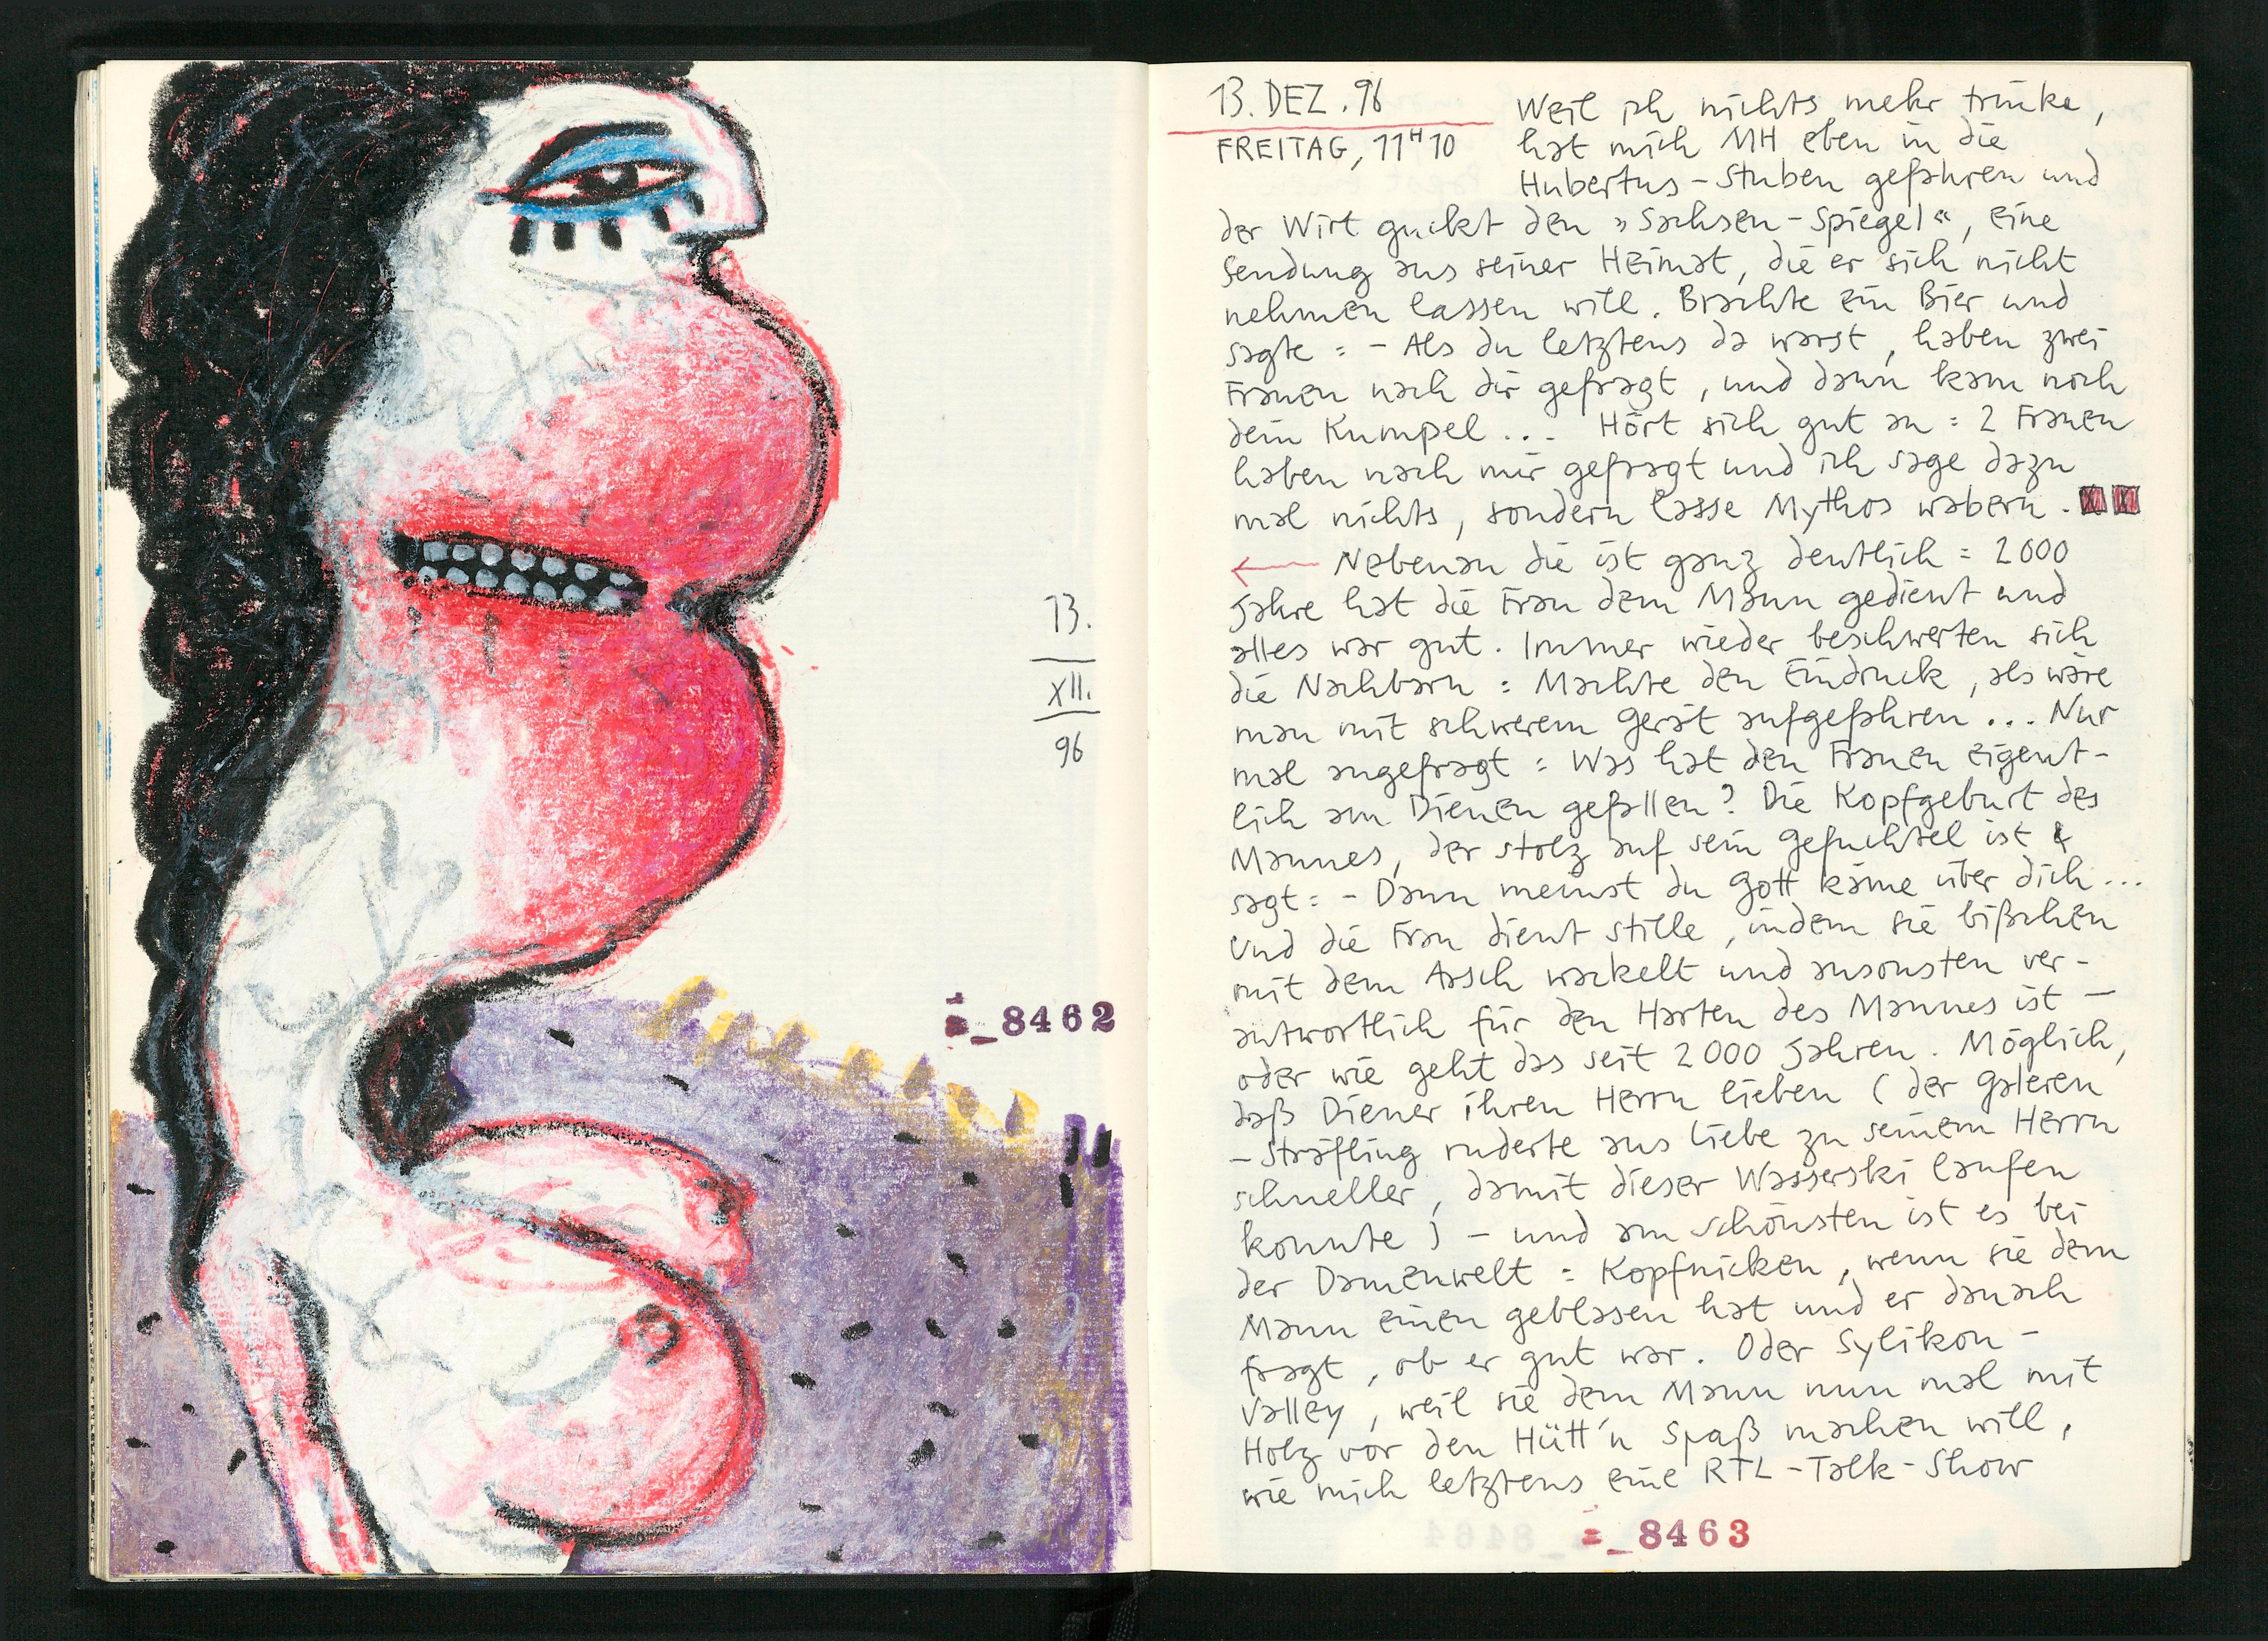 13.
XII.
96
_8462
13. DEZ. 96
FREITAG, 11H10
Weil ich nichts mehr trinke,
hat mich MH eben in die
Hubertus-Stuben gefahren und
der Wirt guckt den »Sachsen-Spiegel«, eine
Sendung aus seiner Heimat, die er sich nicht
nehmen lassen will. Brachte ein Bier und
sagte: - Als du letztens da warst, haben zwei
Frauen nach dir gefragt, und dann kam noch
dein Kumpel... Hört sich gut an: 2 Frauen
haben nach mir gefragt und ich sage dazu
mal nichts, sondern lasse Mythos wabern.
← Nebenan die ist ganz deutlich: 2000
Jahre hat die Frau dem Mann gedient und
alles war gut. Immer wieder beschwerten sich
die Nachbarn: Machte den Eindruck, als wäre
man mit schwerem Gerät aufgefahren... Nur
mal angefragt: Was hat den Frauen eigent-
lich am Dienen gefallen? Die Kopfgeburt des
Mannes, der stolz auf sein Gefuchtel ist &
sagt: - Dann meinst du Gott käme über dich...
Und die Frau dient stille, indem sie bißchen
mit dem Arsch wackelt und ansonsten ver-
antwortlich für den Harten des Mannes ist -
oder wie geht das seit 2000 Jahren. Möglich,
daß Diener ihren Herrn lieben (der Galeren
-Sträfling ruderte aus Liebe zu seinem Herrn
schneller, damit dieser Wasserski laufen
konnte) - und am schönsten ist es bei
der Damenwelt: Kopfnicken, wenn sie dem
Mann einen geblasen hat und er danach
fragt, ob er gut war. Oder Sylikon-
Valley, weil sie dem Mann nun mal mit
Holz vor den Hütt'n Spaß machen will,
wie mich letztens eine RTL-Talk-Show
_8463